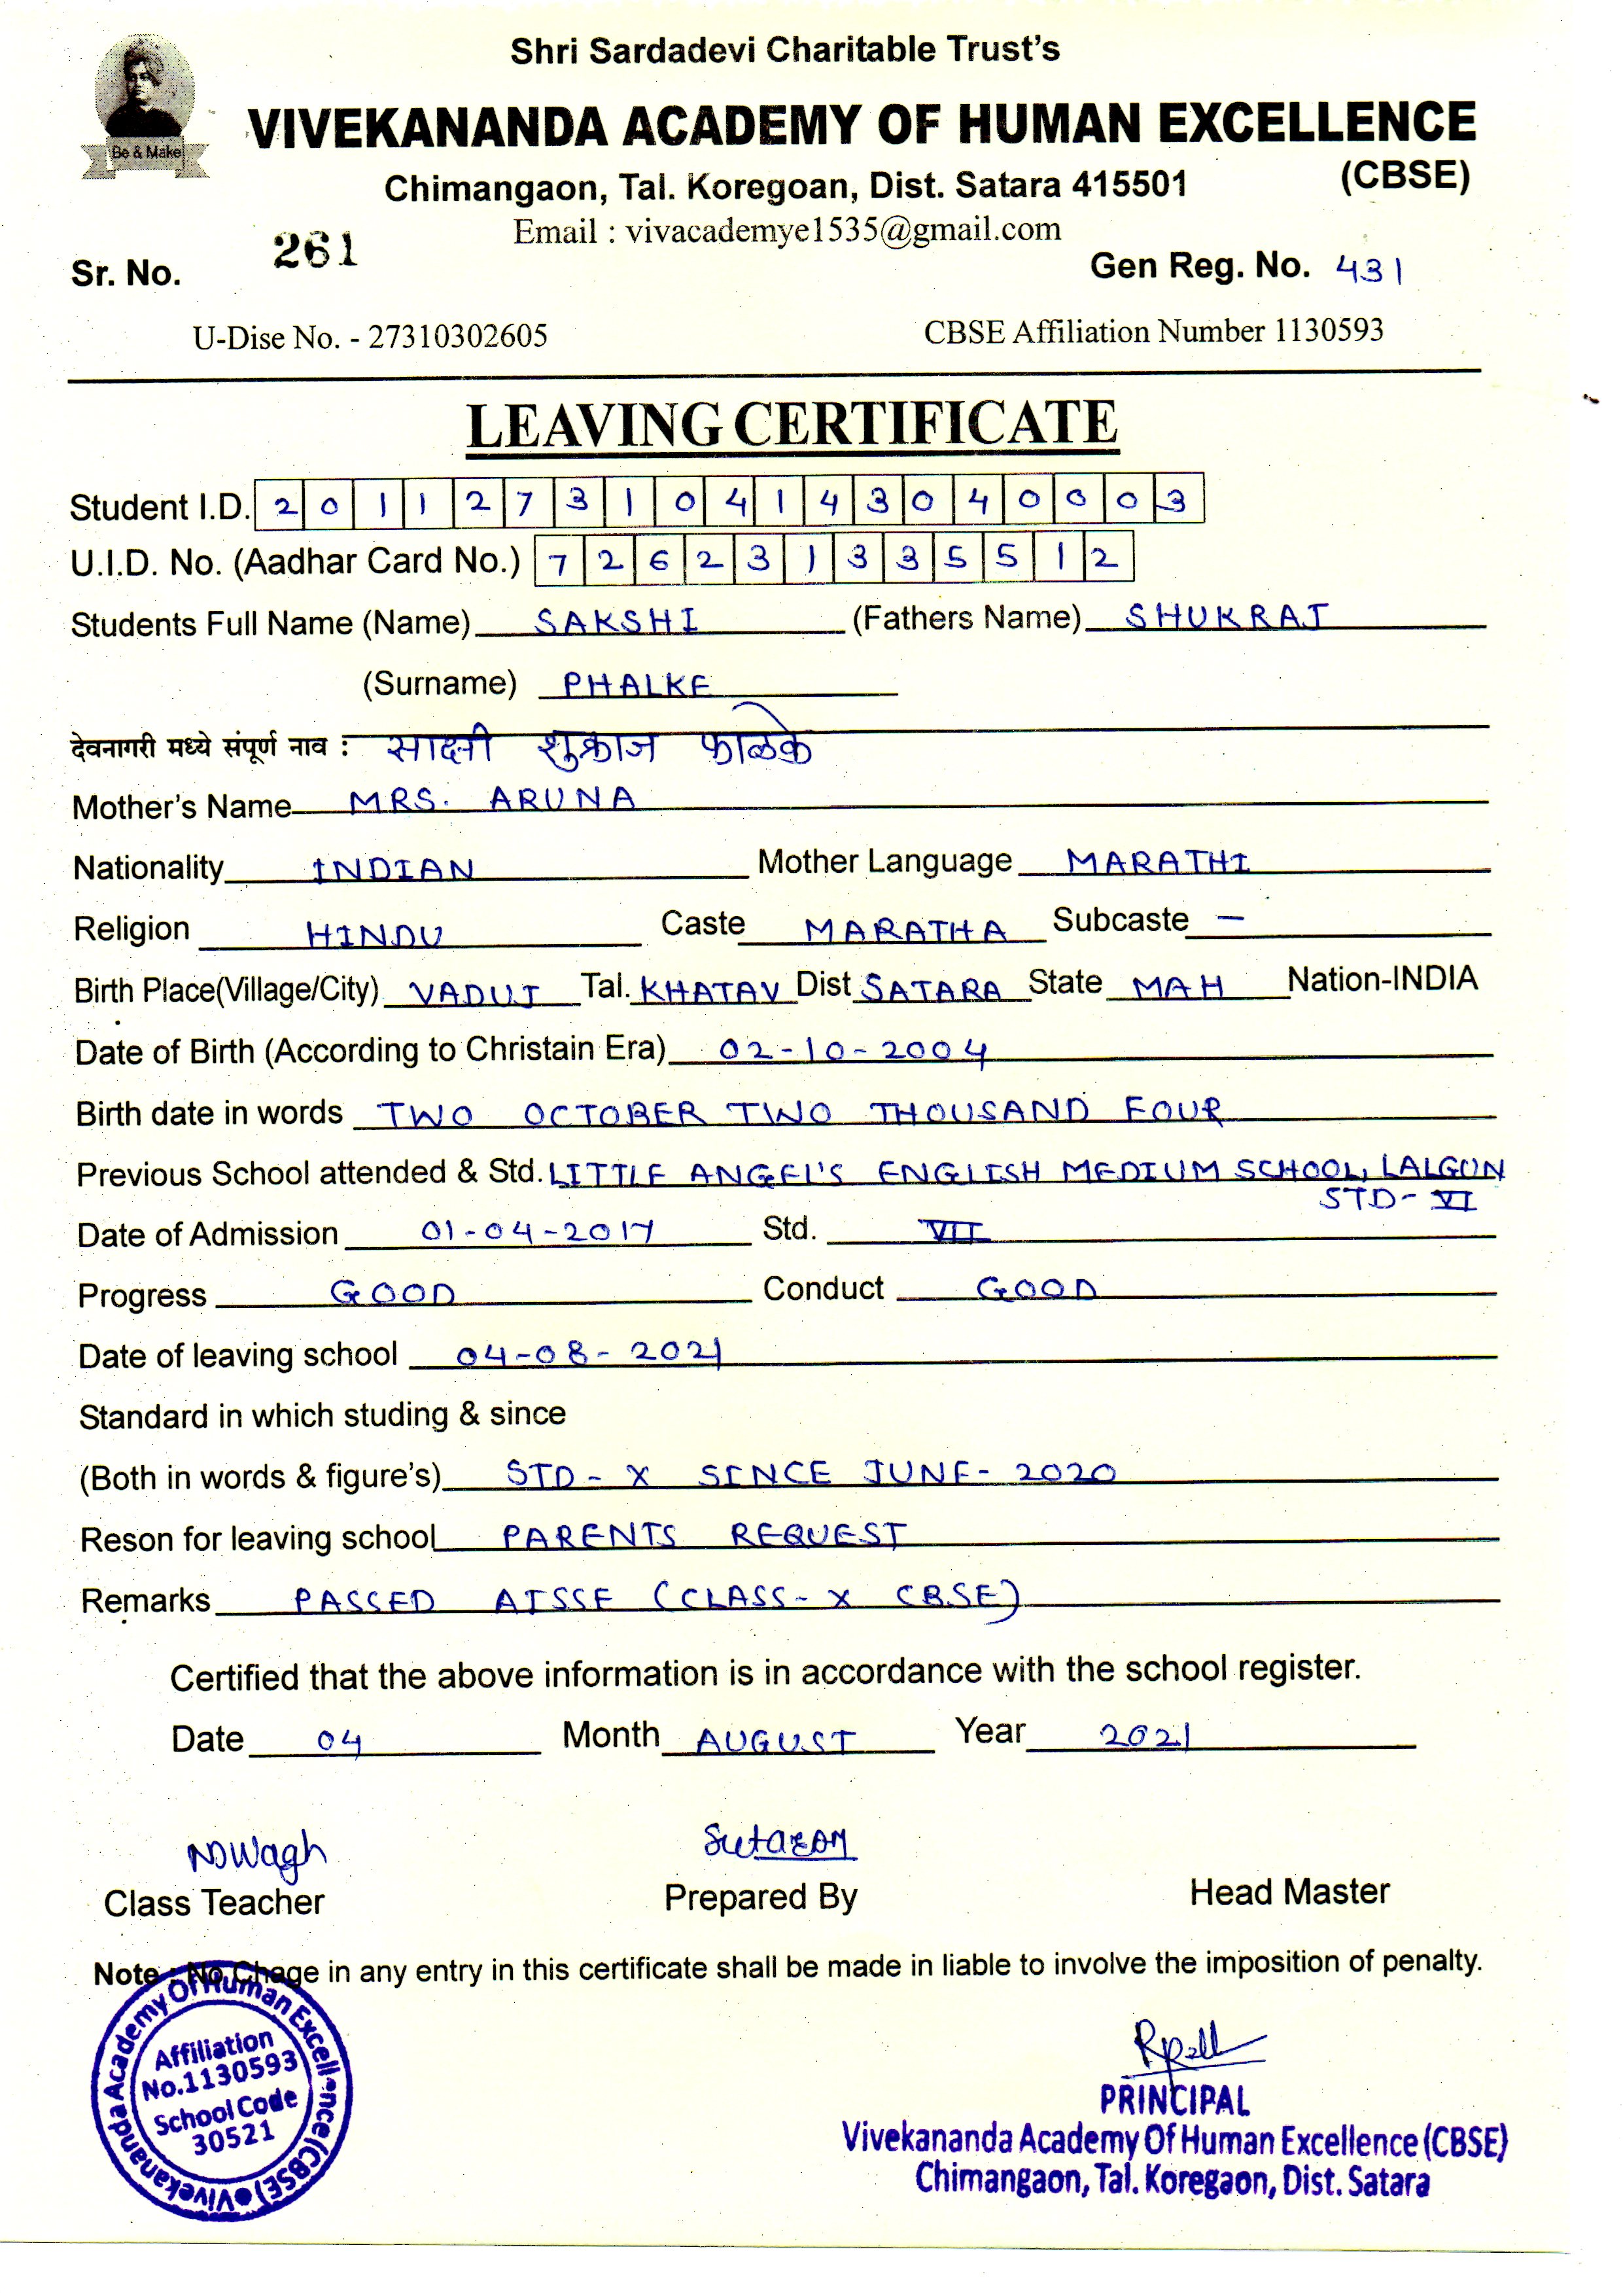 Shri Sardadevi Charitable Trust's
Be & Make
VIVEKANANDA ACADEMY OF HUMAN EXCELLENCE
(CBSE)
Chimangaon, Tal. Koregoan, Dist. Satara 415501
Email : vivacademye1535@gmail.com
Sr. No. 261 Gen Reg. No. 431
U-Dise No. - 27310302605 CBSE Affiliation Number 1130593
LEAVING CERTIFICATE
Student I.D. 2 0 1 1 2 7 3 1 0 4 1 4 3 0 4 0 0 0 3
U.I.D. No. (Aadhar Card No.) 7 2 6 2 3 1 3 3 5 5 1 2
Students Full Name (Name) SAKSHI (Fathers Name) SHUKRAJ
(Surname) PHALKE
देवनागरी मध्ये संपूर्ण नाव : साक्षी शुक्राज फाळके
Mother's Name MRS. ARUNA
Nationality INDIAN Mother Language MARATHI
Religion HINDU Caste MARATHA Subcaste —
Birth Place(Village/City) VADUJ Tal. KHATAV Dist SATARA State MAH Nation-INDIA
Date of Birth (According to Christain Era) 02-10-2004
Birth date in words TWO OCTOBER TWO THOUSAND FOUR
Previous School attended & Std. LITTLE ANGEL'S ENGLISH MEDIUM SCHOOL, LALGUN
STD- VI
Date of Admission 01-04-2017 Std. VII
Progress GOOD Conduct GOOD
Date of leaving school 04-08-2021
Standard in which studing & since
(Both in words & figure's) STD - X SINCE JUNE- 2020
Reson for leaving school PARENTS REQUEST
Remarks PASSED AISSE (CLASS- X CBSE)
Certified that the above information is in accordance with the school register.
Date 04 Month AUGUST Year 2021
NDWagh
Class Teacher Prepared By Head Master
Note : No Chage in any entry in this certificate shall be made in liable to involve the imposition of penalty.
Vivekananda Academy Of Human Excellence (CBSE)
Affiliation
No.1130593
School Code
30521
PRINCIPAL
Vivekananda Academy Of Human Excellence (CBSE)
Chimangaon, Tal. Koregaon, Dist. Satara